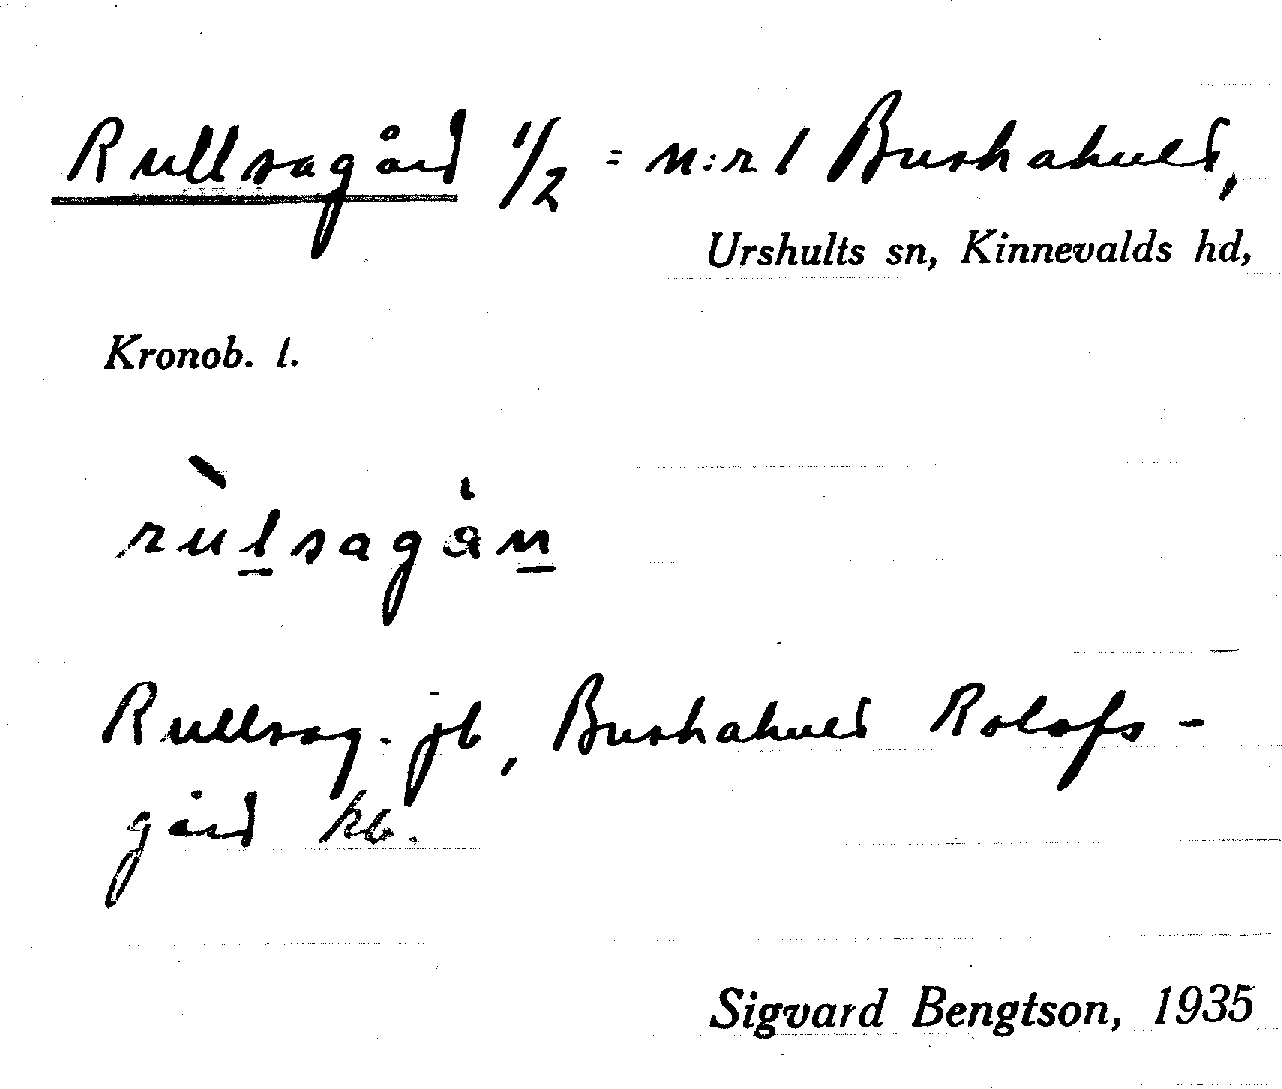 Rullsagård 1/2 = n:r 1 Bushahult,
Urshults sn, Kinnevalds hd,
Kronob. l.
rùlsagån
Rullsag- jb, Bushahult Rolofs-
gård kb.
Sigvard Bengtson, 1935